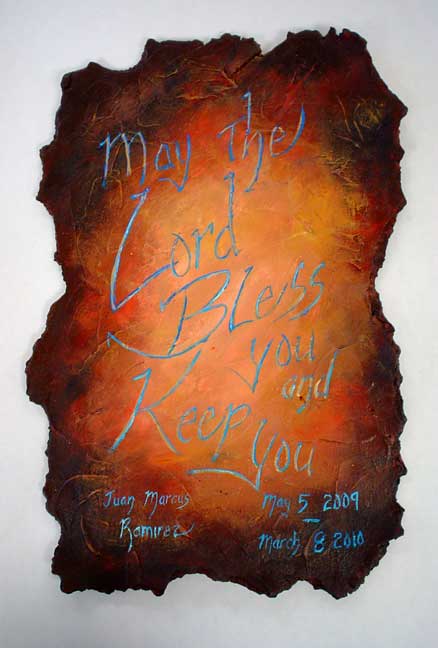 May the
Lord
Bless
you
and
Keep
you
Juan Marcus
Ramirez
May 5 2009
—
March 8 2010